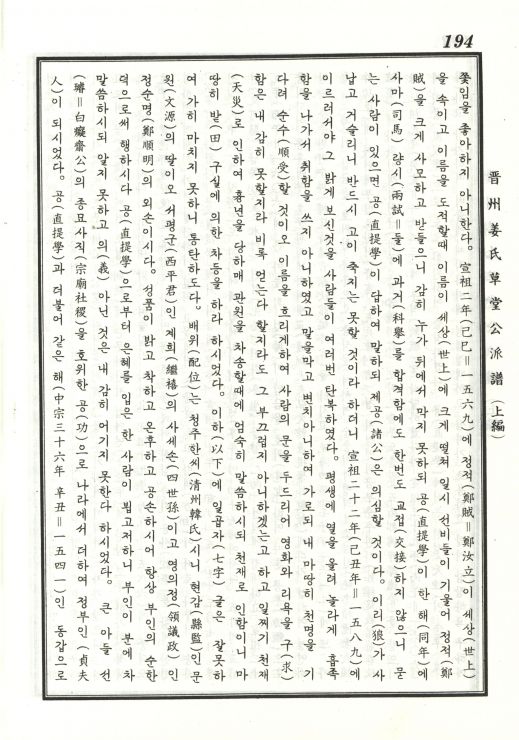 194
晋州姜氏草堂公派譜 (上編)
꽃임을 좋아하지 아니한다. 宣祖二年(己巳=一五六九)에 정적(鄭賊=鄭汝立)이 세상(世上)
을 속이고 이름을 도적할때 이름이 세상(世上)에 크게 떨쳐 일시 선비들이 기울어 정적(鄭
賊)을 크게 사모하고 받들으니 감히 누가 뒤에서 막지 못하되 공(直提學)이 한해(同年)에
사마(司馬) 량시(兩試=둘)에 과거(科擧)를 합격함에도 한번도 교접(交接)하지 않으니 묻
는 사람이 있으면 공(直提學)이 답하여 말하되 제공(諸公)은 의심할 것이다. 이리(狼)가 사
납고 거슬리니 반드시 고이 죽지는 못할 것이라 하더니 宣祖二十二年(己丑年=一五八九)에
이르러서야 그 밝게 보신것을 사람들이 여러번 탄복하였다. 평생에 열을 올려 놀라게 흡족
함을 나가서 취함을 쓰지 아니하였고 말을막고 변치아니하여 가로되 내 마땅히 천명을 기
다려 순수(順受)할 것이오 이름을 흐리게하여 사람의 문을 두드리어 영화와 리욕을 구(求)
함은 내 감히 못할지라 비록 얻는다 할지라도 그 부끄럽지 아니하겠는고 하고 일찌기 천재
(天災)로 인하여 흉년을 당하매 관원을 차송할때에 엄숙히 말씀하시되 천재로 인함이니 마
땅히 밭(田) 구실에 의한 차등을 하라 하시었다. 이하(以下)에 일곱자(七字) 글은 잘못하
여 가히 마치지 못하니 통탄하도다. 배위(配位)는 청주한씨(清州韓氏)시니 현감(縣監)인 문
원(文源)의 딸이오 서평군(西平君)인 계희(繼禧)의 사세손(四世孫)이고 영의정(領議政)인
정순명(鄭順明)의 외손이시다. 성품이 밝고 착하고 온후하고 공손하시어 항상 부인의 순한
덕으로써 행하시다 공(直提學)으로부터 은혜를 입은 한 사람이 뵙고저하니 부인이 분에 차
말씀하시되 알지 못하고 의(義) 아닌 것은 내 감히 어기지 못한다 하시었다. 큰 아들 선
(璿=白癡齋公)의 종묘사직(宗廟社稷)을 호위한 공(功)으로 나라에서 더하여 정부인(貞夫
人)이 되시었다. 공(直提學)과 더불어 같은 해(中宗三十六年 辛丑=一五四一)인 동갑으로